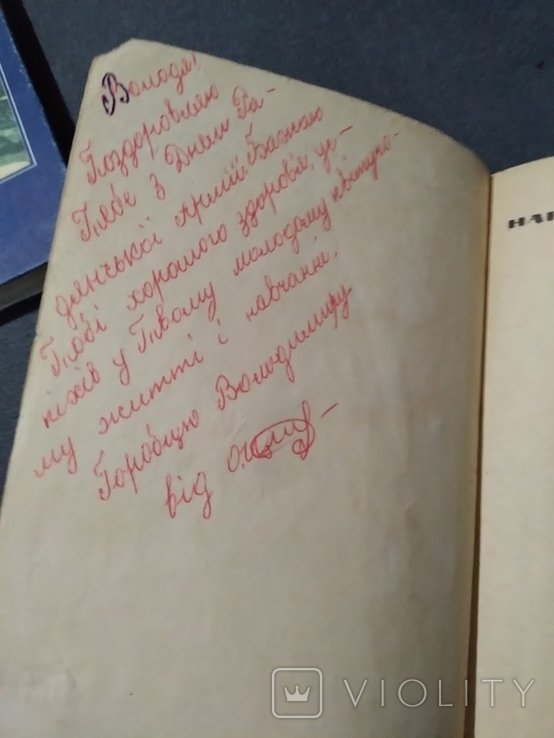 Володя!
Поздоровляю
Тебе з Днем Ра-
дянської Армії. Бажаю
Тобі хорошого здоров'я, ус-
піхів у Твому молодому квітучо-
му житті і навчанні.
Горобцю Володимиру
від
НАР
VIOLITY